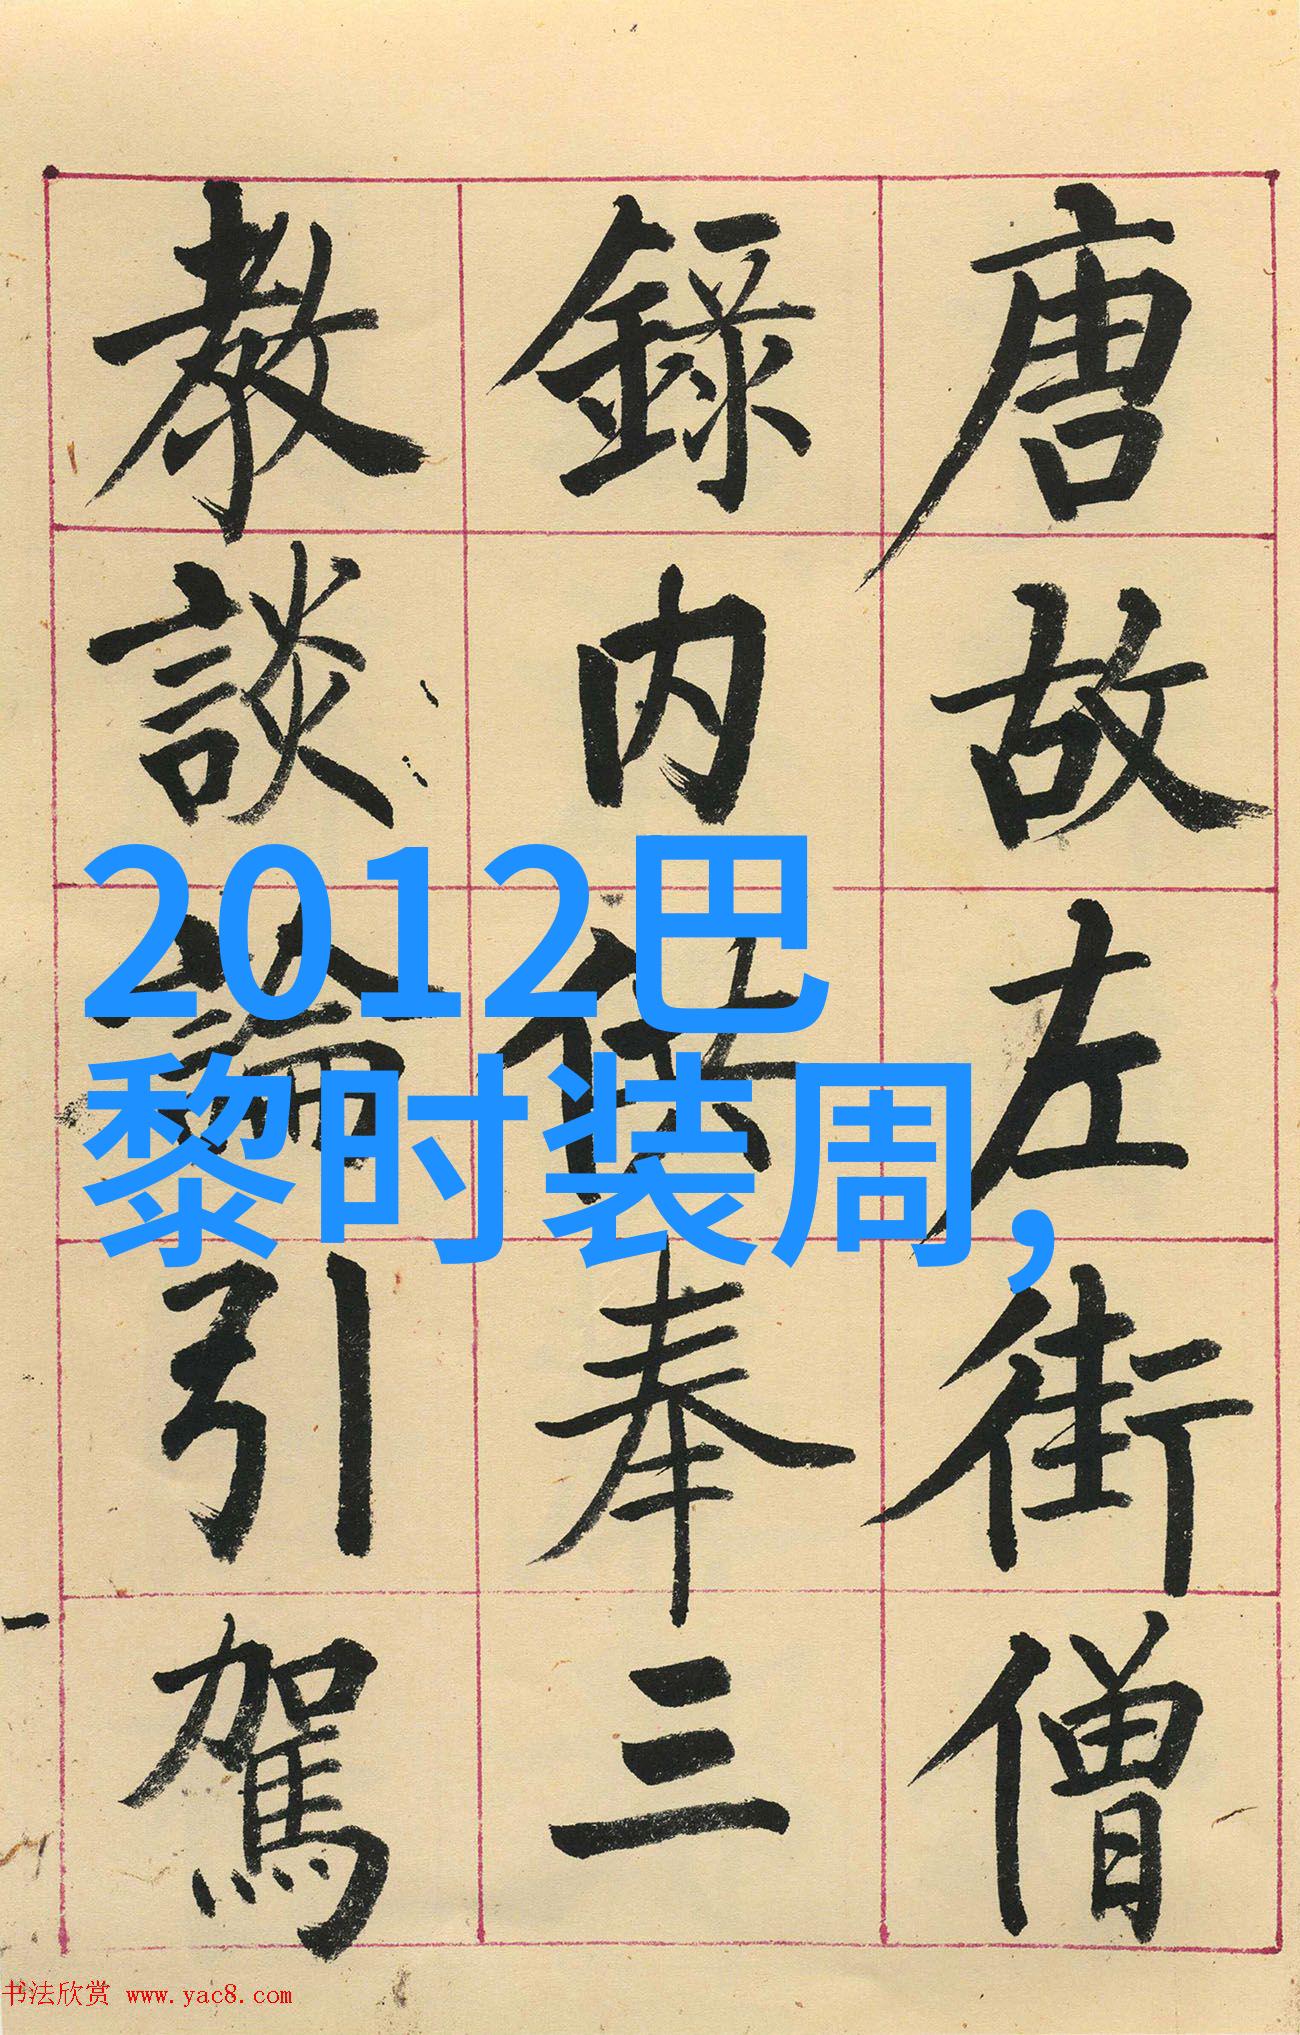 唐故左街僧
録内供奉三
教談論引駕
2012巴
黎时装周,
书法欣赏 www.yac8.com